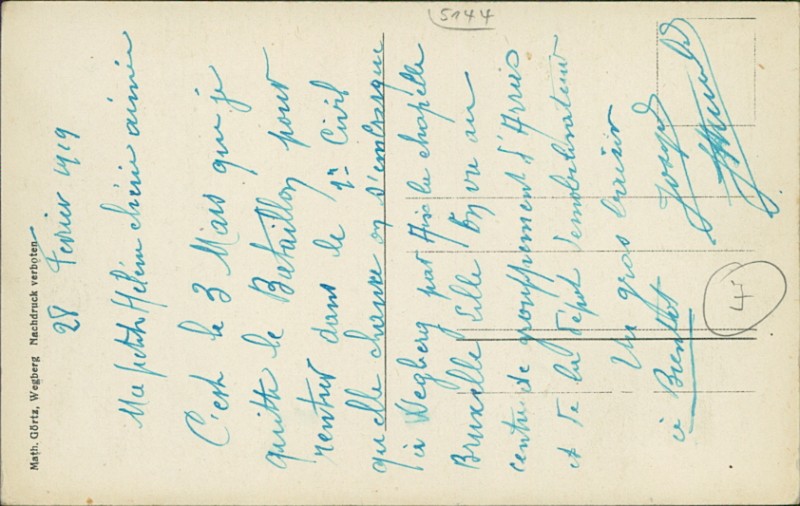 5144
28 Fevrier 1919
Ma petite Hélène chérie aimée
C'est le 3 Mars que je
quitte le Bataillon pour
rentrer dans le Civil
quelle chance on s'embarque
à Wegberg par Aix la chapelle
Bruxelle Lille on va au
centre de grouppement d'Arras
et de la dépot demobilisateur
Un gros baiser
à Joseph
4
Math. Görtz, Wegberg Nachdruck verboten